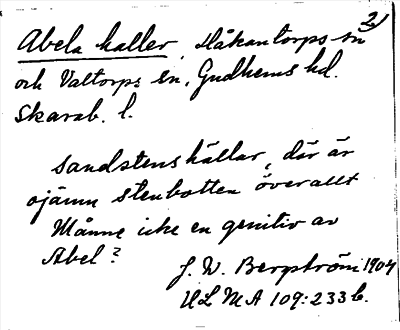 2)
Abela hallar, Håkantorps sn
och Valtorps sn, Gudhems hd.
Skarab. l.
sandstenshällar, där är
ojämn stenbotten överallt
Månne icke en genitiv av
Abel?
J. W. Bergström 1904
ULMA 109:233 b.